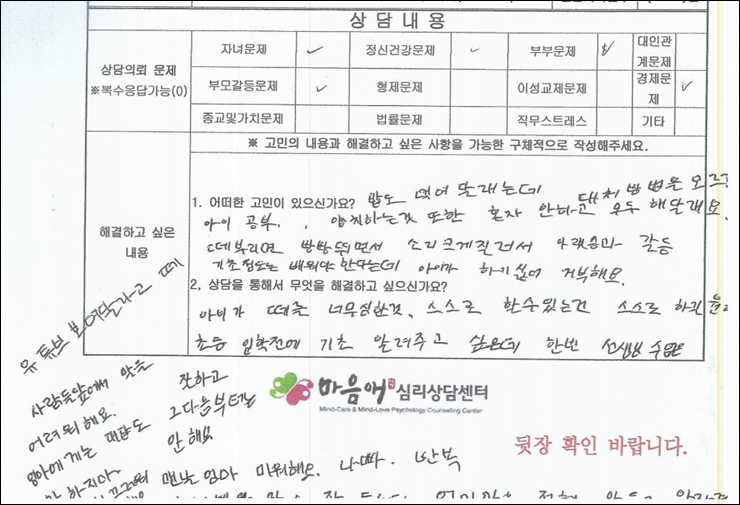 상 담 내 용
상담의뢰 문제
※복수응답가능(0)
자녀문제 ✓ 정신건강문제 ✓ 부부문제 ✓ 대인관계문제
부모갈등문제 ✓ 형제문제 이성교제문제 경제문제 ✓
종교및가치문제 법률문제 직무스트레스 기타
해결하고 싶은
내용
※ 고민의 내용과 해결하고 싶은 사항을 가능한 구체적으로 작성해주세요.
1. 어떠한 고민이 있으신가요? 밥도 먹여 달래는데 대처 방법을 모르
아이 공부. , 양치하는것 또한 혼자 안하고 모두 해달래요
떼부리면 방방뛰면서 소리크게질러서 아랫층과 갈등
기초정도는 배워야 한다는데 아이가 하기싫어 거부해요.
2. 상담을 통해서 무엇을 해결하고 싶으신가요?
아이가 떼쓴 너무심한것, 스스로 할수있는건 스스로 하길
초등 입학전에 기초 알려주고 싶은데 한번 선생님 수업
유튜브 보여달라고 떼
사람들앞에서 말을 잘하고
어려워 해요. 그다음부터는
엄마에게는 대답도 안 해요
맨날 엄마 미워해요. 나빠. 반복
마음애 심리상담센터
Mind-Care & Mind-Love Psychology Counseling Center
뒷장 확인 바랍니다.